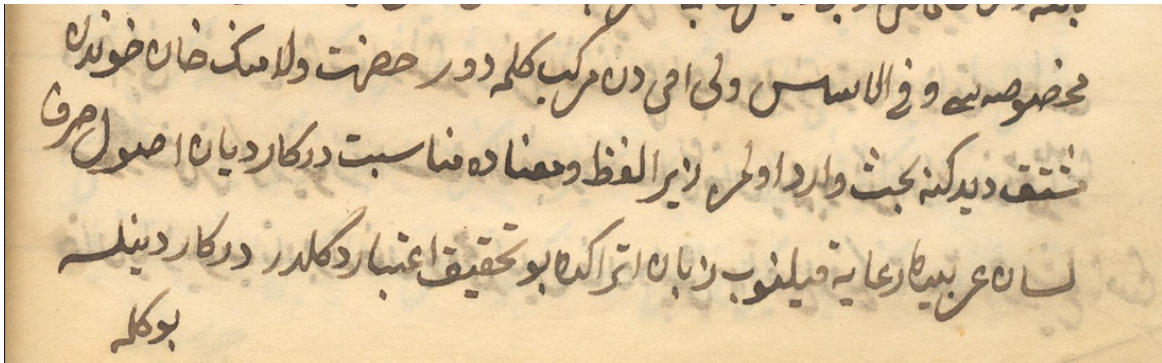 مخصوصه سی و فی الاساس ولی امی دن مرکب کلمه دور حضرت ولامنک خان خوندن
مشتق دیدکنه بحث وارد اولمز زیرا لفظ ومعناده مناسبت درکار دیان اصول صرف
لسان عربیده رعایة قیلنوب زبان اتراکده بو تحقیق اعتبار دگلدر درکار دینلسه
بو کلمه